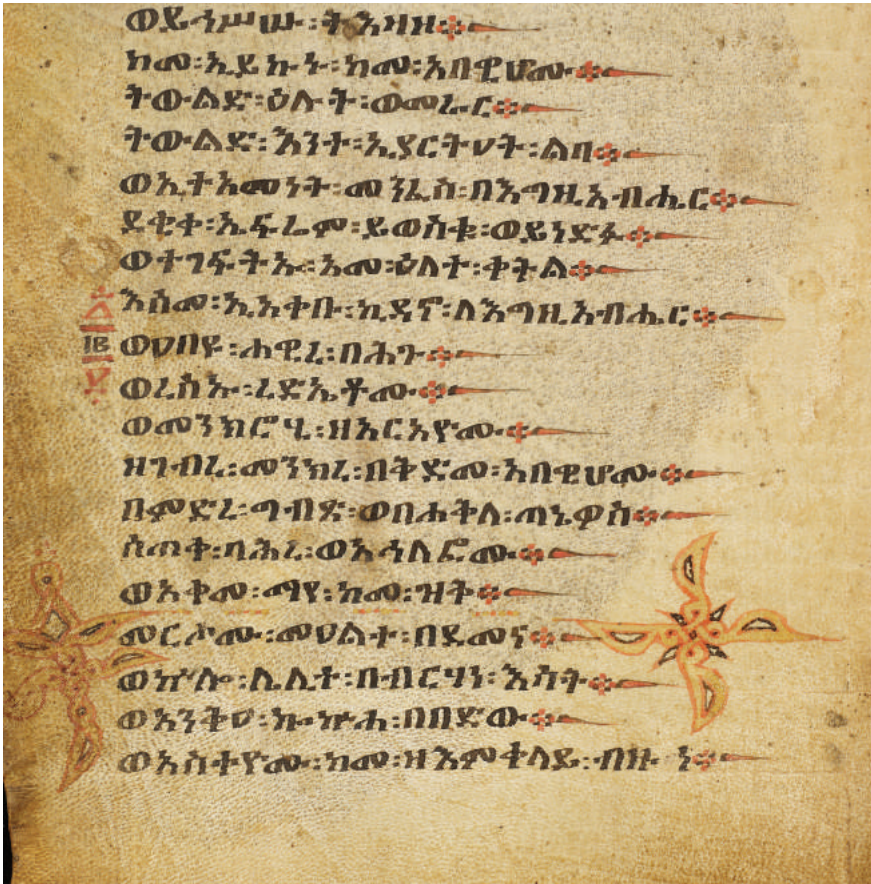 ወይኅሥሡ፡ትእዛዞ፨
ከመ፡ኢይኩኑ፡ከመ፡አበዊሆሙ፨
ትውልድ፡ዕሉት፡ወመራር፨
ትውልድ፡እንተ፡ኢያርትዐት፡ልባ፨
ወኢተአመነት፡መንፈሳ፡በእግዚአብሔር፨
ደቂቀ፡ኤፍሬም፡ይወስቁ፡ወይነድፉ፨
ወተገፍትኡ፡አመ፡ዕለተ፡ቀትል፨
እስመ፡ኢአቀቡ፡ኪዳኖ፡ለእግዚአብሔር፨
፲፪ ወዐበዩ፡ሐዊረ፡በሕጉ፨
ወረስኡ፡ረድኤቶሙ፨
ወመንክሮሂ፡ዘአርአዮሙ፨
ዘገብረ፡መንክረ፡በቅድመ፡አበዊሆሙ፨
በምድረ፡ግብጽ፡ወበሐቅለ፡ጣኔዎስ፨
ሰጠቀ፡ባሕረ፡ወአኅለፎሙ፨
ወአቀመ፡ማየ፡ከመ፡ዝቅ፨
መርሖሙ፡መዐልተ፡በደመና፨
ወኵሎ፡ሌሊተ፡በብርሃነ፡እሳት፨
ወአንቅዐ፡ኰኵሐ፡በበድው፨
ወአስተዮሙ፡ከመ፡ዘእምቀላይ፡ብዙኅ፨